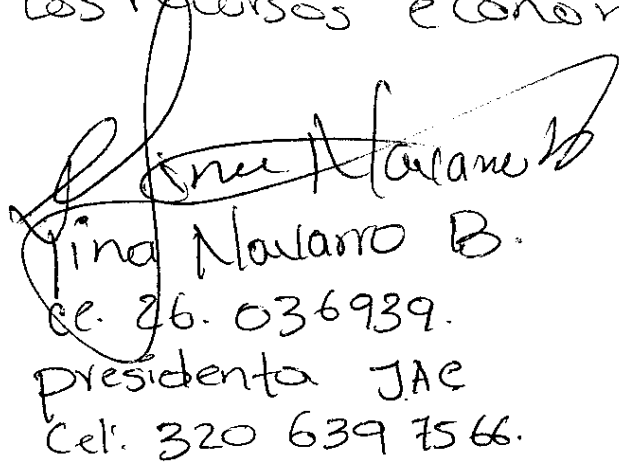 Los recursos econor
Yina Navarro B
Yina Navarro B.
cc. 26. 036939.
presidenta JAC
Cel: 320 639 7566.